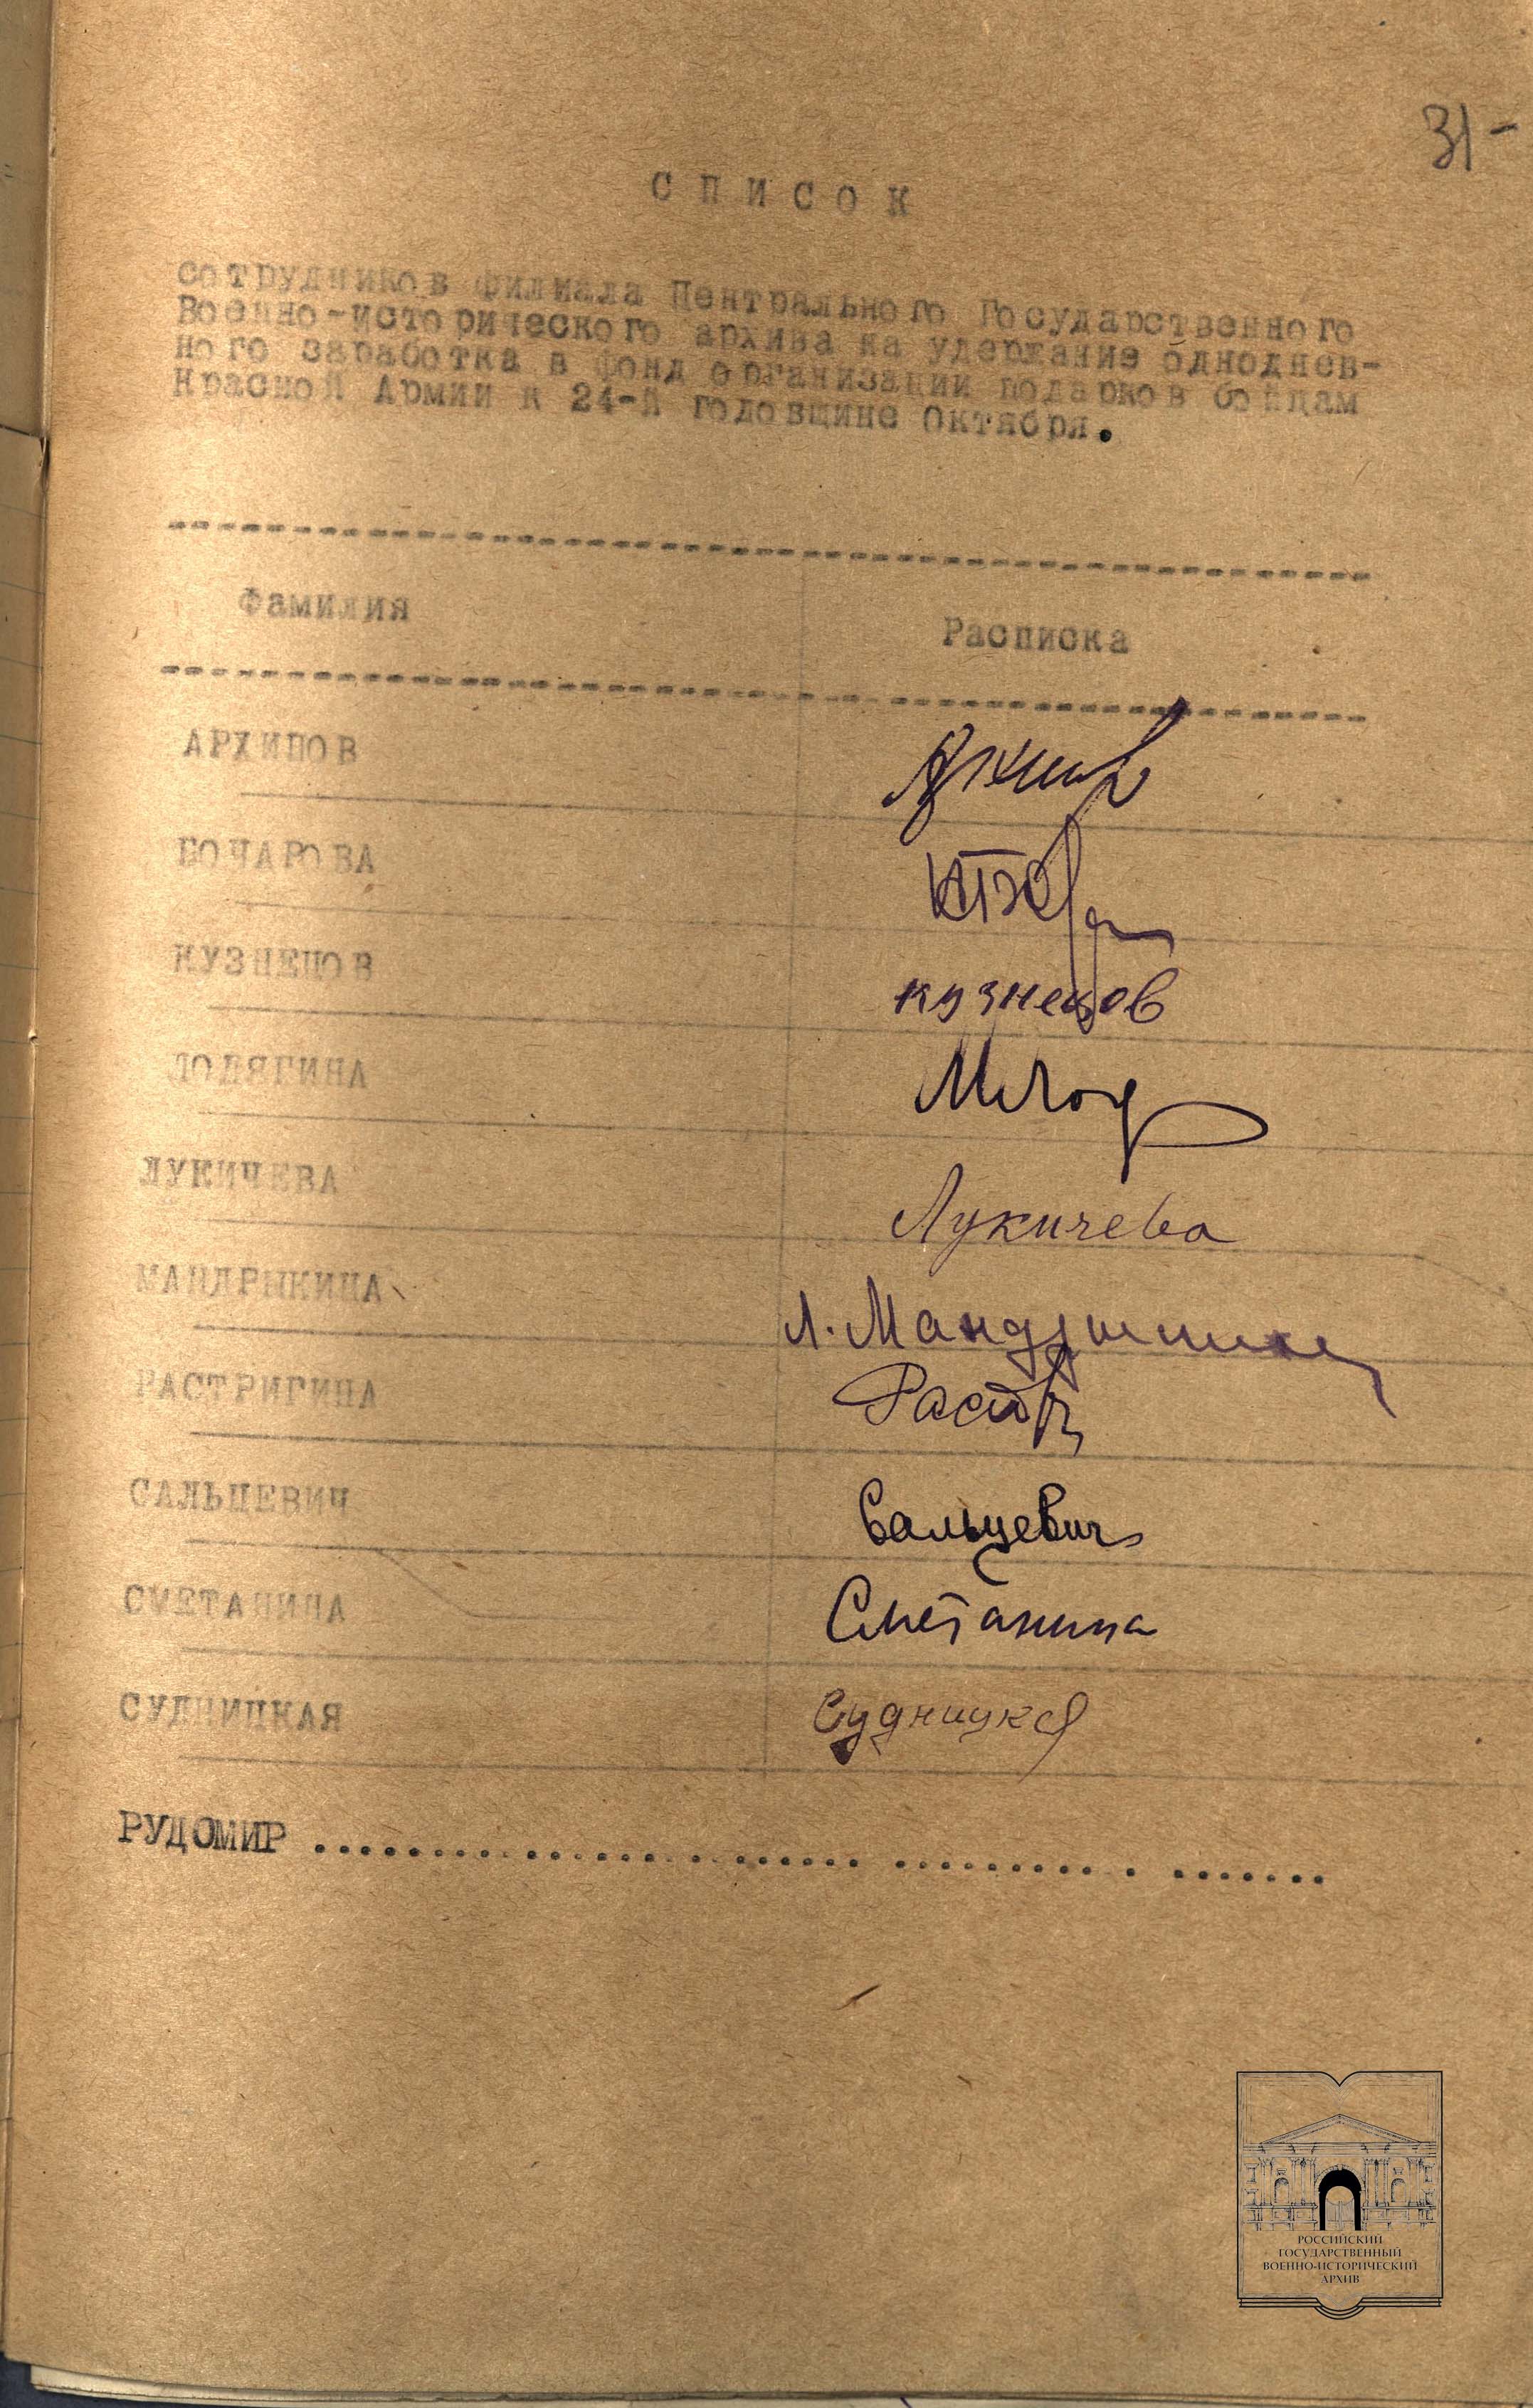 31-
СПИСОК
сотрудников филиала Центрального Государственного
Военно-исторического архива на удержание одноднев-
ного заработка в фонд организации подарков бойцам
Красной Армии к 24-й годовщине Октября.
Фамилия Расписка
АРХИПОВ Архипов
БОЧАРОВА
КУЗНЕЦОВ кузнецов
ЛОДЯГИНА МЛод
ЛУКИЧЕВА Лукичева
МАНДРЫКИНА Л. Мандрыкина
РАСТРИГИНА Растр
САЛЬЦЕВИЧ Сальцевич
СМЕТАНИНА Сметанина
СУДНИЦКАЯ Судницкая
РУДОМИР ..................................................
РОССИЙСКИЙ
ГОСУДАРСТВЕННЫЙ
ВОЕННО-ИСТОРИЧЕСКИЙ
АРХИВ